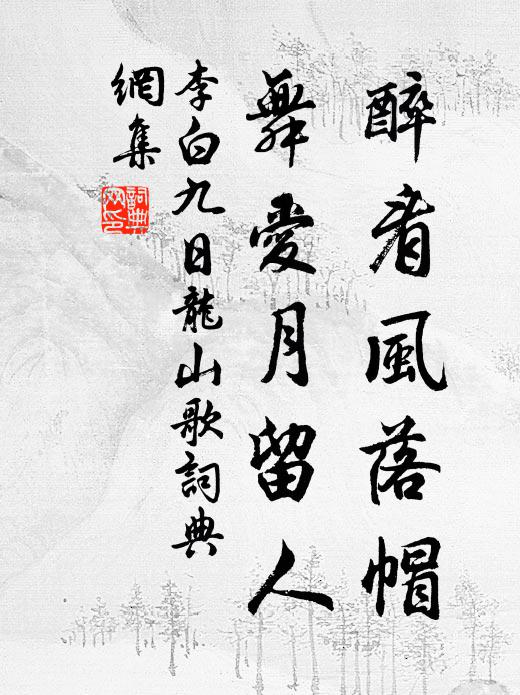 醉看風落帽
舞愛月留人
李白九日龍山歌詞典
網集
詞典
网印